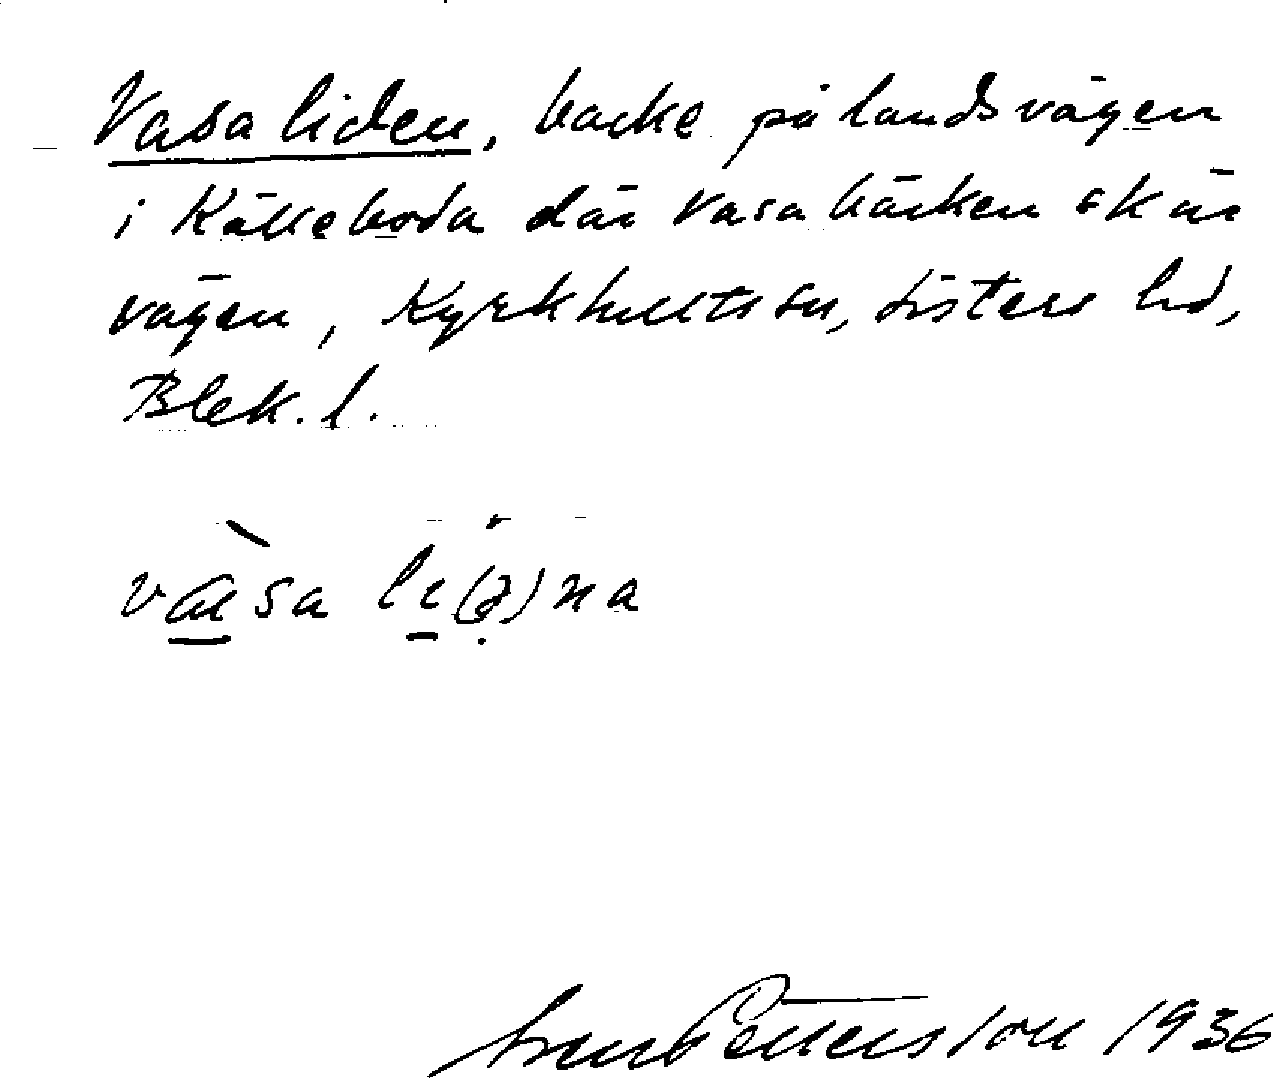 Vasaliden, backe på landsvägen
i Källeboda där Vasabäcken skär
vägen, Kyrkhults sn, Listers hd,
Blek. l.
vàsa li(ə)na
Petterson 1936